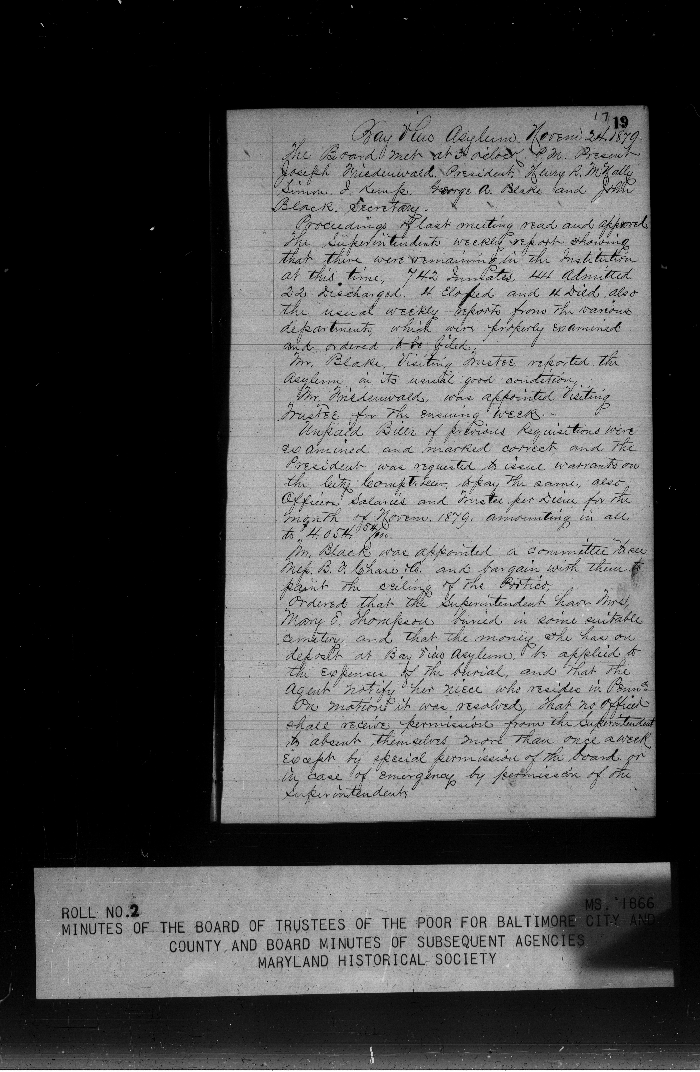 17 19
Bay View Asylum Novem 24. 1879
The Board met at 3 oclock P.M. Present
Joseph Friedenwald, President, Henry R. McNally
Simon J. Kemp George A. Blake and John
Black. Secretary.
Proceedings of last meeting read and approved
The Superintendents weekly report showing
that there were remaining in the Institution
at this time, 742 Inmates, 44 Admitted
22 Discharged. 4 Eloped and 4 Died. also
the usual weekly reports from the various
departments, which were properly examined
and ordered to be filed.
Mr. Blake, Visiting Trustee reported the
Asylum in its usual good condition.
Mr. Friedenwald, was appointed Visiting
Trustee for the ensuing week.
Unpaid Bills of previous Requisitions were
examined and marked correct, and the
President was requested to issue warrants on
the City Comptroller, to pay the same, also
Officers Salaries and Trustee per Diem for the
month of Novem. 1879. amounting in all
to $4.054
Mr. Black was appointed a committee to see
Mess. B. F. and bargain with them to
paint the ceiling of the Portico.
Ordered that the Superintendent have Mrs.
Mary E. Thompson buried in some suitable
cemetery and that the money she has on
deposit at Bay View Asylum be applied to
the expenses of the burial, and that the
Agent notify her niece who resides in Penna.
On motion it was resolved, that no Officer
shall receive permission from the Superintendent
to absent themselves more than once a week
except by special permission of the board or
in case of emergency by permission of the
Superintendent.
ROLL NO. 2 MS. 1866
MINUTES OF THE BOARD OF TRUSTEES OF THE POOR FOR BALTIMORE CITY AND
COUNTY AND BOARD MINUTES OF SUBSEQUENT AGENCIES
MARYLAND HISTORICAL SOCIETY